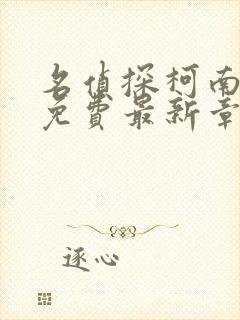 名侦探柯南
免费最新章
逐心